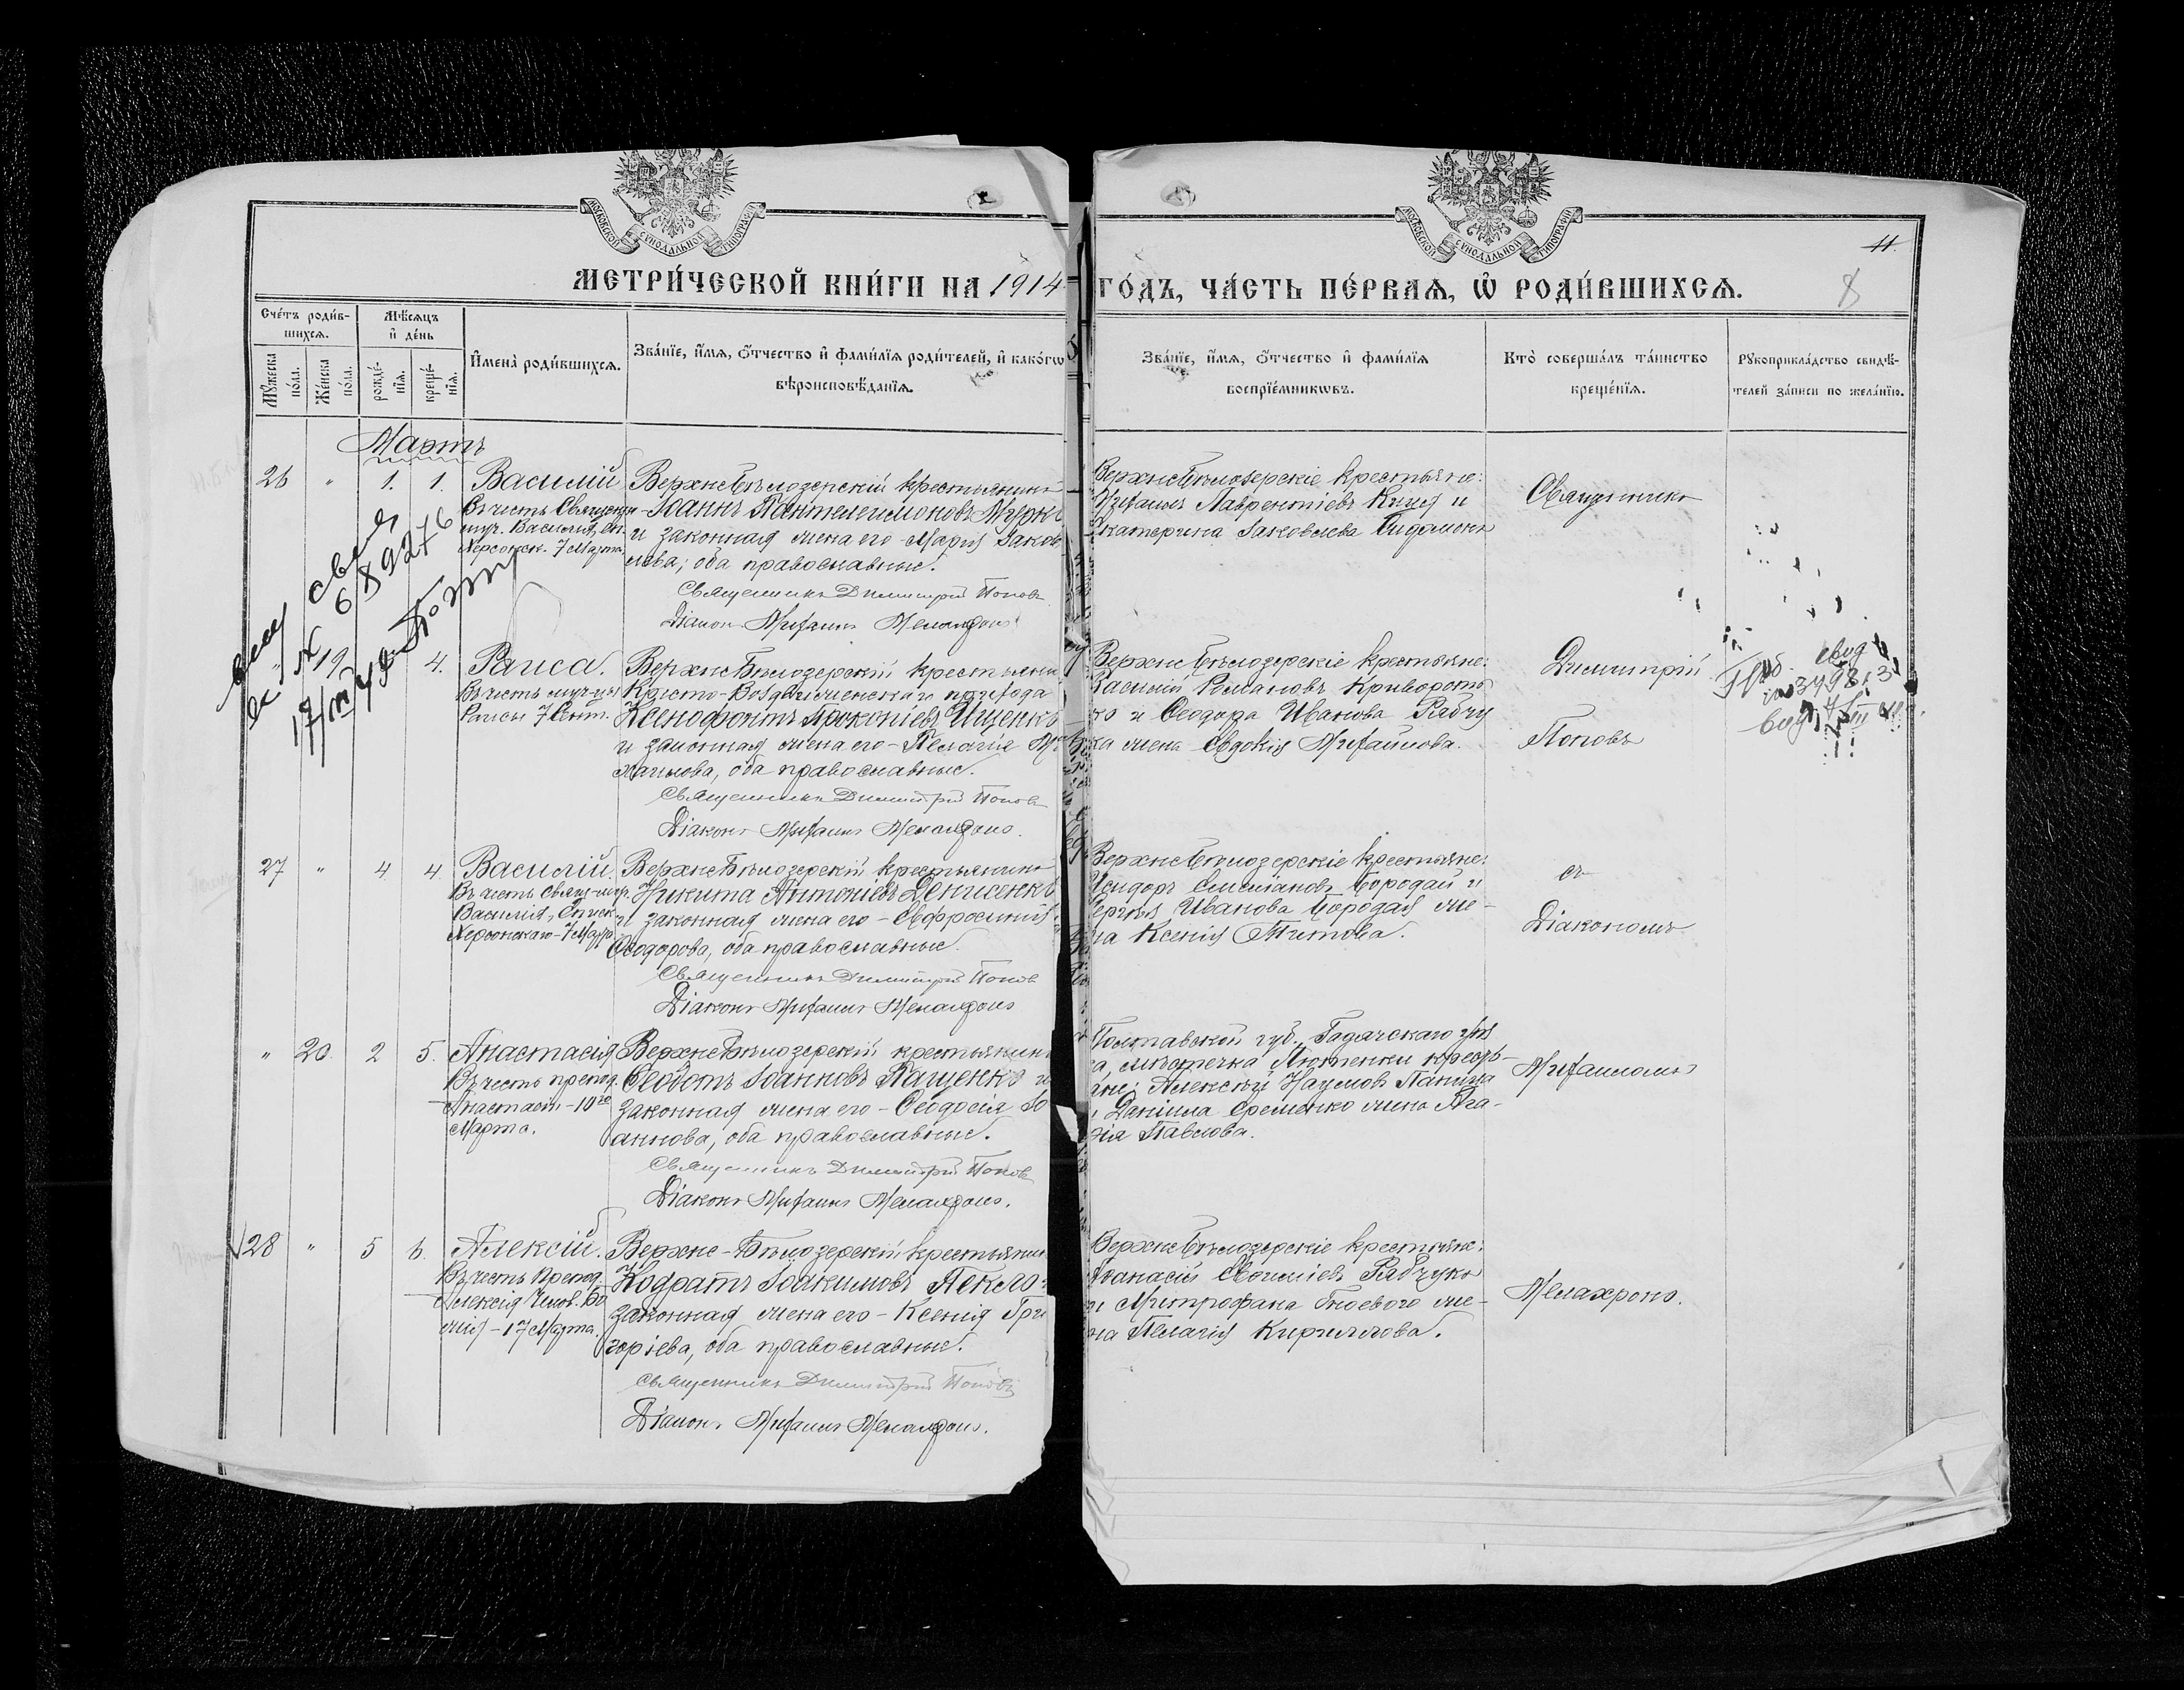 МОСКОВСКОЙ СУНОДАЛЬНОЙ ТИПОГРАФИИ
МОСКОВСКОЙ СУНОДАЛЬНОЙ ТИПОГРАФИИ
11.
8
МЕТРИ́ЧЕСКОЙ КНИ́ГИ НА 1914
ГО́ДЪ, ЧА́СТЬ ПЕ́РВАЯ, Ѡ РОДИ́ВШИХСЯ.
Сче́тъ роди́в-
шихся.
Мꙋжеска
по́ла.
Же́нска
по́ла.
Мѣ́сяцъ
и де́нь
рожде́-
нїя.
креще́-
нїя.
Имена̀ роди́вшихся.
Зва́нїе, и́мя, о́тчество и фами́лїя роди́телей, и како́гѡ
вѣроисповѣ́данїя.
Зва́нїе, и́мя, о́тчество и фами́лїя
воспрїе́мникѡвъ.
Кто̀ соверша́лъ та́инство
креще́нїя.
Рꙋкоприкла́дство свидѣ́-
телей за́писи по жела́нїю.
Мартъ
26 " 1. 1. Василій
Въ честь Священно-
муч. Василія, еп.
Херсонск. 7 Марта
Верхнебѣлозерскій крестьянинъ
Іоаннъ Пантелеимоновъ
и законная жена его Марія Іаков
лева; оба православные.
Священникъ Димитрій Поповъ
Діаконъ Михаилъ Мелахроно
Верхнебѣлозерскіе крестьяне:
Михаилъ Лаврентіевъ и
Екатерина Іаковлева
Священникъ
№ 689276
" 19 4. Раиса.
Въ честь муч-цы
Раисы 7 Сент.
Верхнебѣлозерскій крестьянин
Кресто-Воздвиженскаго прихода
Ксенофонтъ Прокопіевъ Ищенко
и законная жена его - Пелагія Ми
хаилова, оба православные.
Священникъ Димитрій Поповъ
Діаконъ Михаилъ Мелахроно.
Верхнебѣлозерскіе крестьяне:
Василій Романовъ Криворот
ко и Ѳеодора Иванова Рябчу
ка жена Евдокія Михайлова.
Димитрій
Поповъ
27 " 4 4 Василій.
Въ честь Свящ-муч.
Василія, Еписк.
Херсонскаго - 7 Марта
Верхнебѣлозерскій крестьянинъ
Никита Антоніевъ Денисенко
и законная жена его - Евфросинія
Ѳеодорова, оба православные.
Священникъ Димитрій Поповъ
Діаконъ Михаилъ Мелахроно
Верхнебѣлозерскіе крестьяне:
Исидоръ Бородай и
Сергія Иванова Бородая же-
на Ксенія Титова.
съ
Діакономъ
" 20. 2 5. Анастасія
Въ честь препод.
Анастасіи - 10го
Марта.
Верхнебѣлозерскій крестьянинъ
Ѳеодотъ Іоанновъ Пащенко и
законная жена его - Ѳеодосія Іо
аннова, оба православные.
Священникъ Димитрій Поповъ
Діаконъ Михаилъ Мелахроно.
Полтавской губ., Гадячскаго уѣз
а, мѣстечка Лютенки крестья-
не: Алексѣй Наумовъ Паница
и Даніила Еременко жена Ага-
ѳія Павлова.
Михаиломъ
28 " 5 6. Алексій.
Въ честь Препод.
Алексія Челов. Бо
жія - 17 Марта.
Верхне-Бѣлозерскій крестьянин
Кодратъ Іоакимовъ Пекло и
законная жена его - Ксенія Гри
горіева, оба православные.
Священникъ Димитрій Поповъ
Діаконъ Михаилъ Мелахроно.
Верхнебѣлозерскіе крестьяне:
Аѳанасій Евѳиміевъ Рябчуко
и Митрофана Гноевого же-
на Пелагія Кириллова.
Мелахроно.